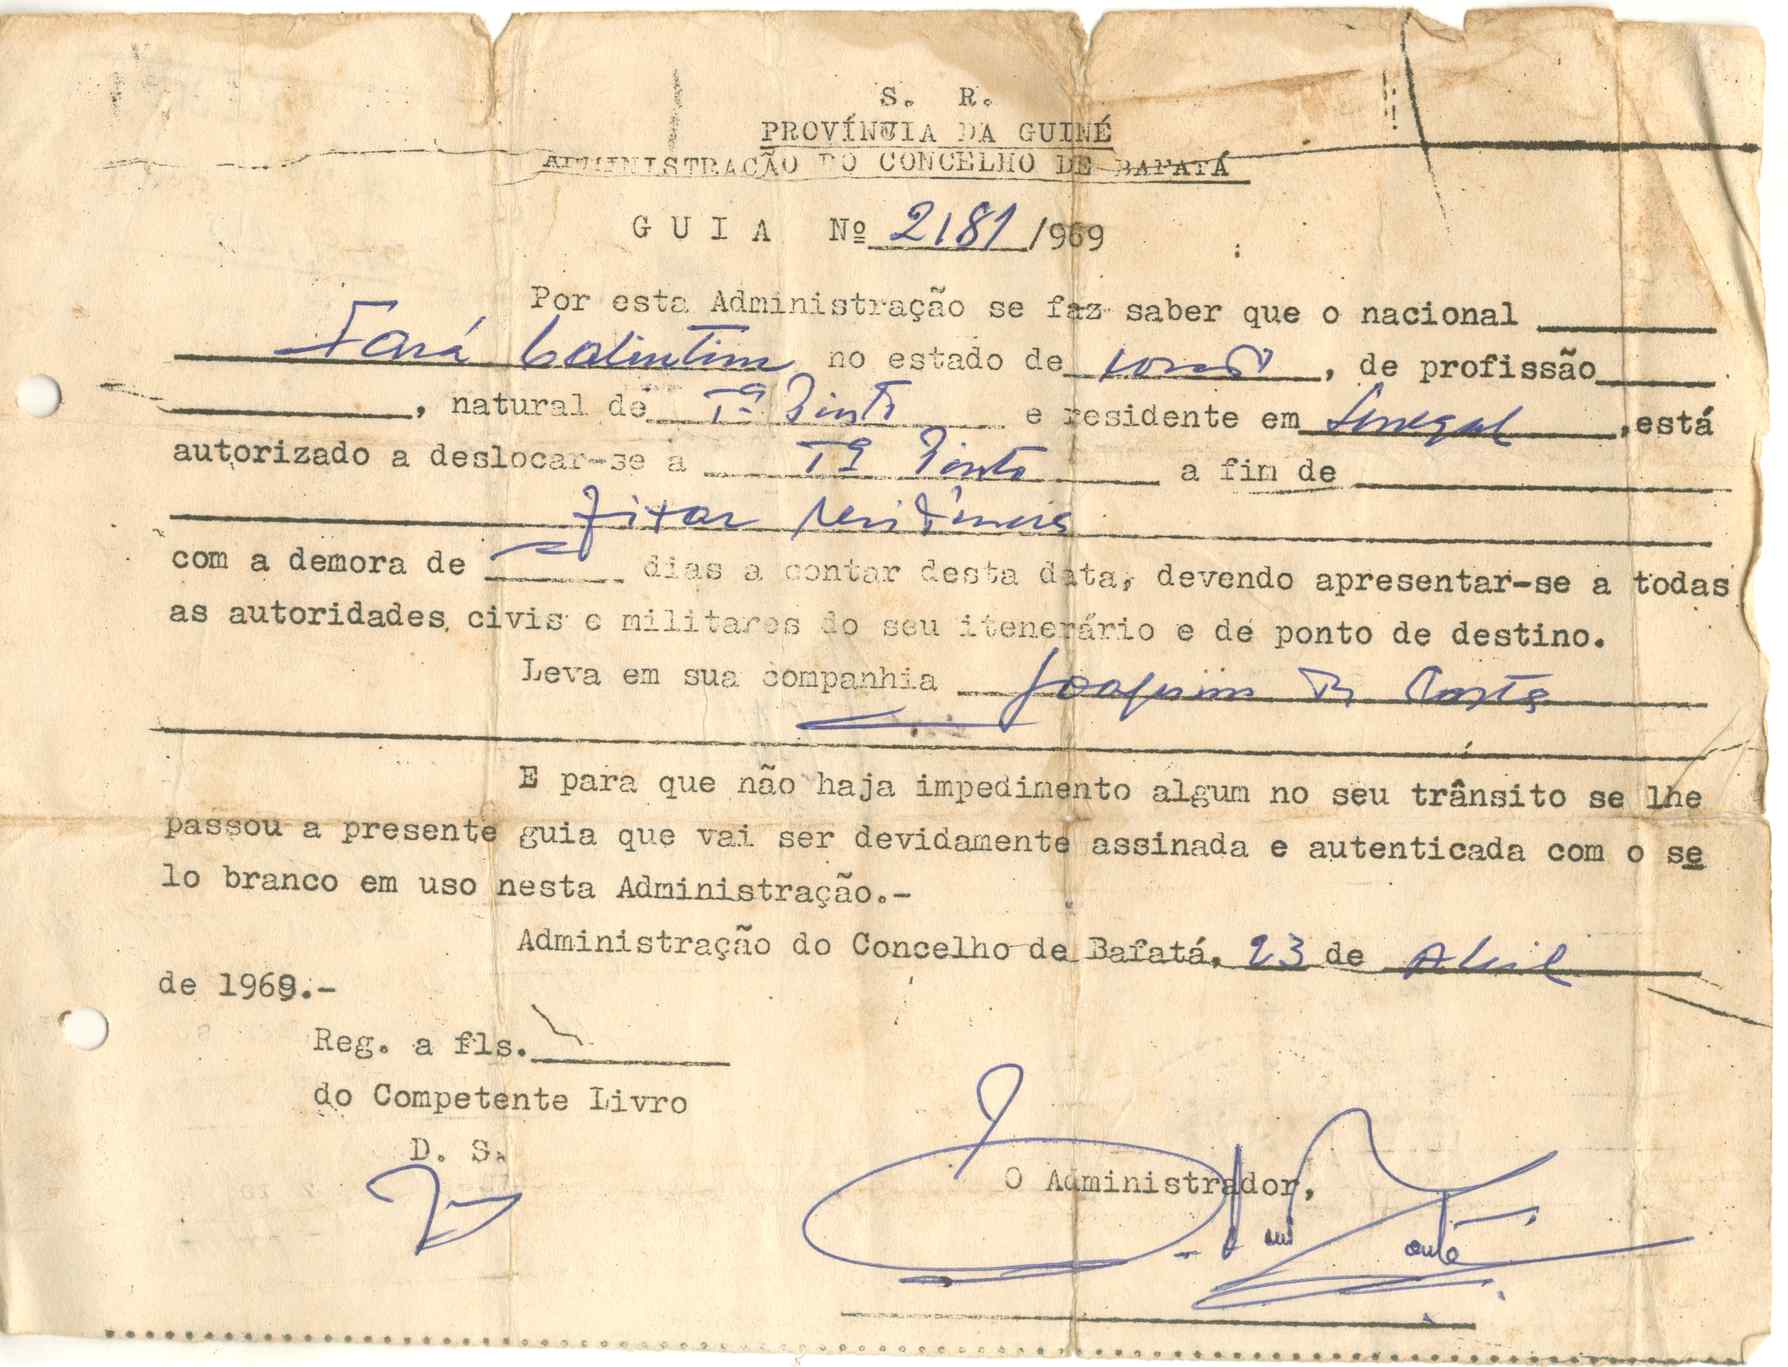 S. R.
PROVÍNCIA DA GUINÉ
ADMINISTRAÇÃO DO CONCELHO DE BAFATÁ
GUIA Nº 2181/1969
Por esta Administração se faz saber que o nacional
no estado de , de profissão
, natural de Tª Pinto e residente em Senegal, está
autorizado a deslocar-se a Tª Pinto a fim de
fixar residência
com a demora de dias a contar desta data, devendo apresentar-se a todas
as autoridades civis e militares do seu itenerário e de ponto de destino.
Leva em sua companhia Joaquim Costa
E para que não haja impedimento algum no seu trânsito se lhe
passou a presente guia que vai ser devidamente assinada e autenticada com o se
lo branco em uso nesta Administração.-
Administração do Concelho de Bafatá, 23 de Abril
de 1969.-
Reg. a fls.
do Competente Livro
D. S.
O Administrador,